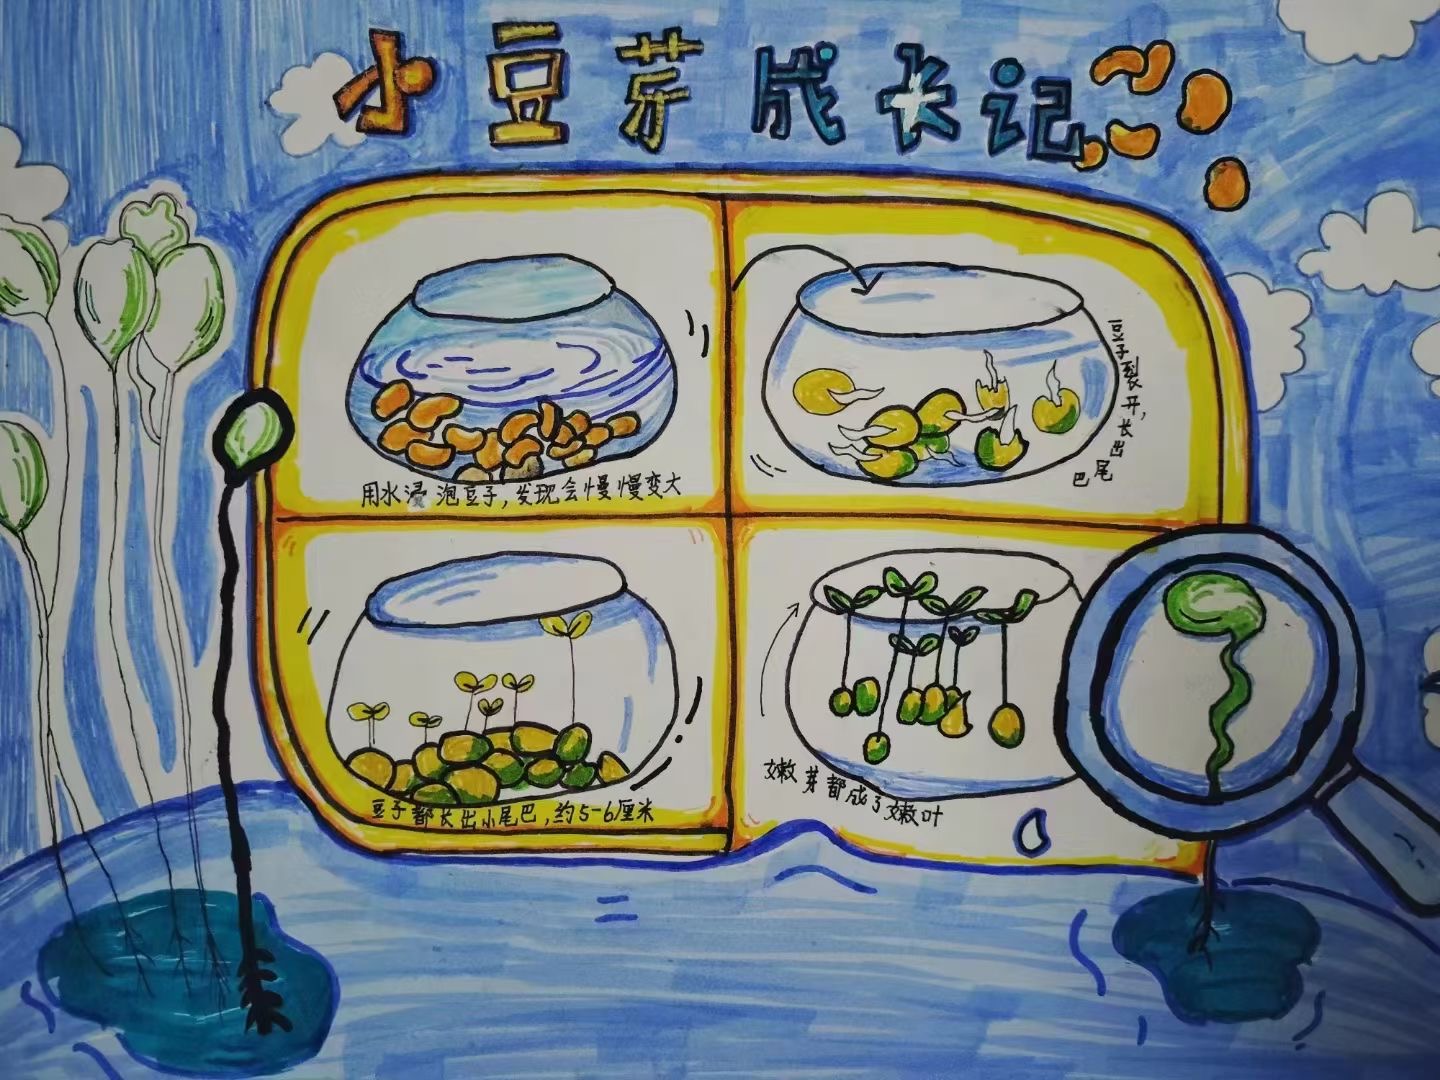 小豆芽成长记
用水浸泡豆子,发现会慢慢变大
豆子裂开,长出尾巴
豆子都长出小尾巴,约5-6厘米
嫩芽都成了嫩叶